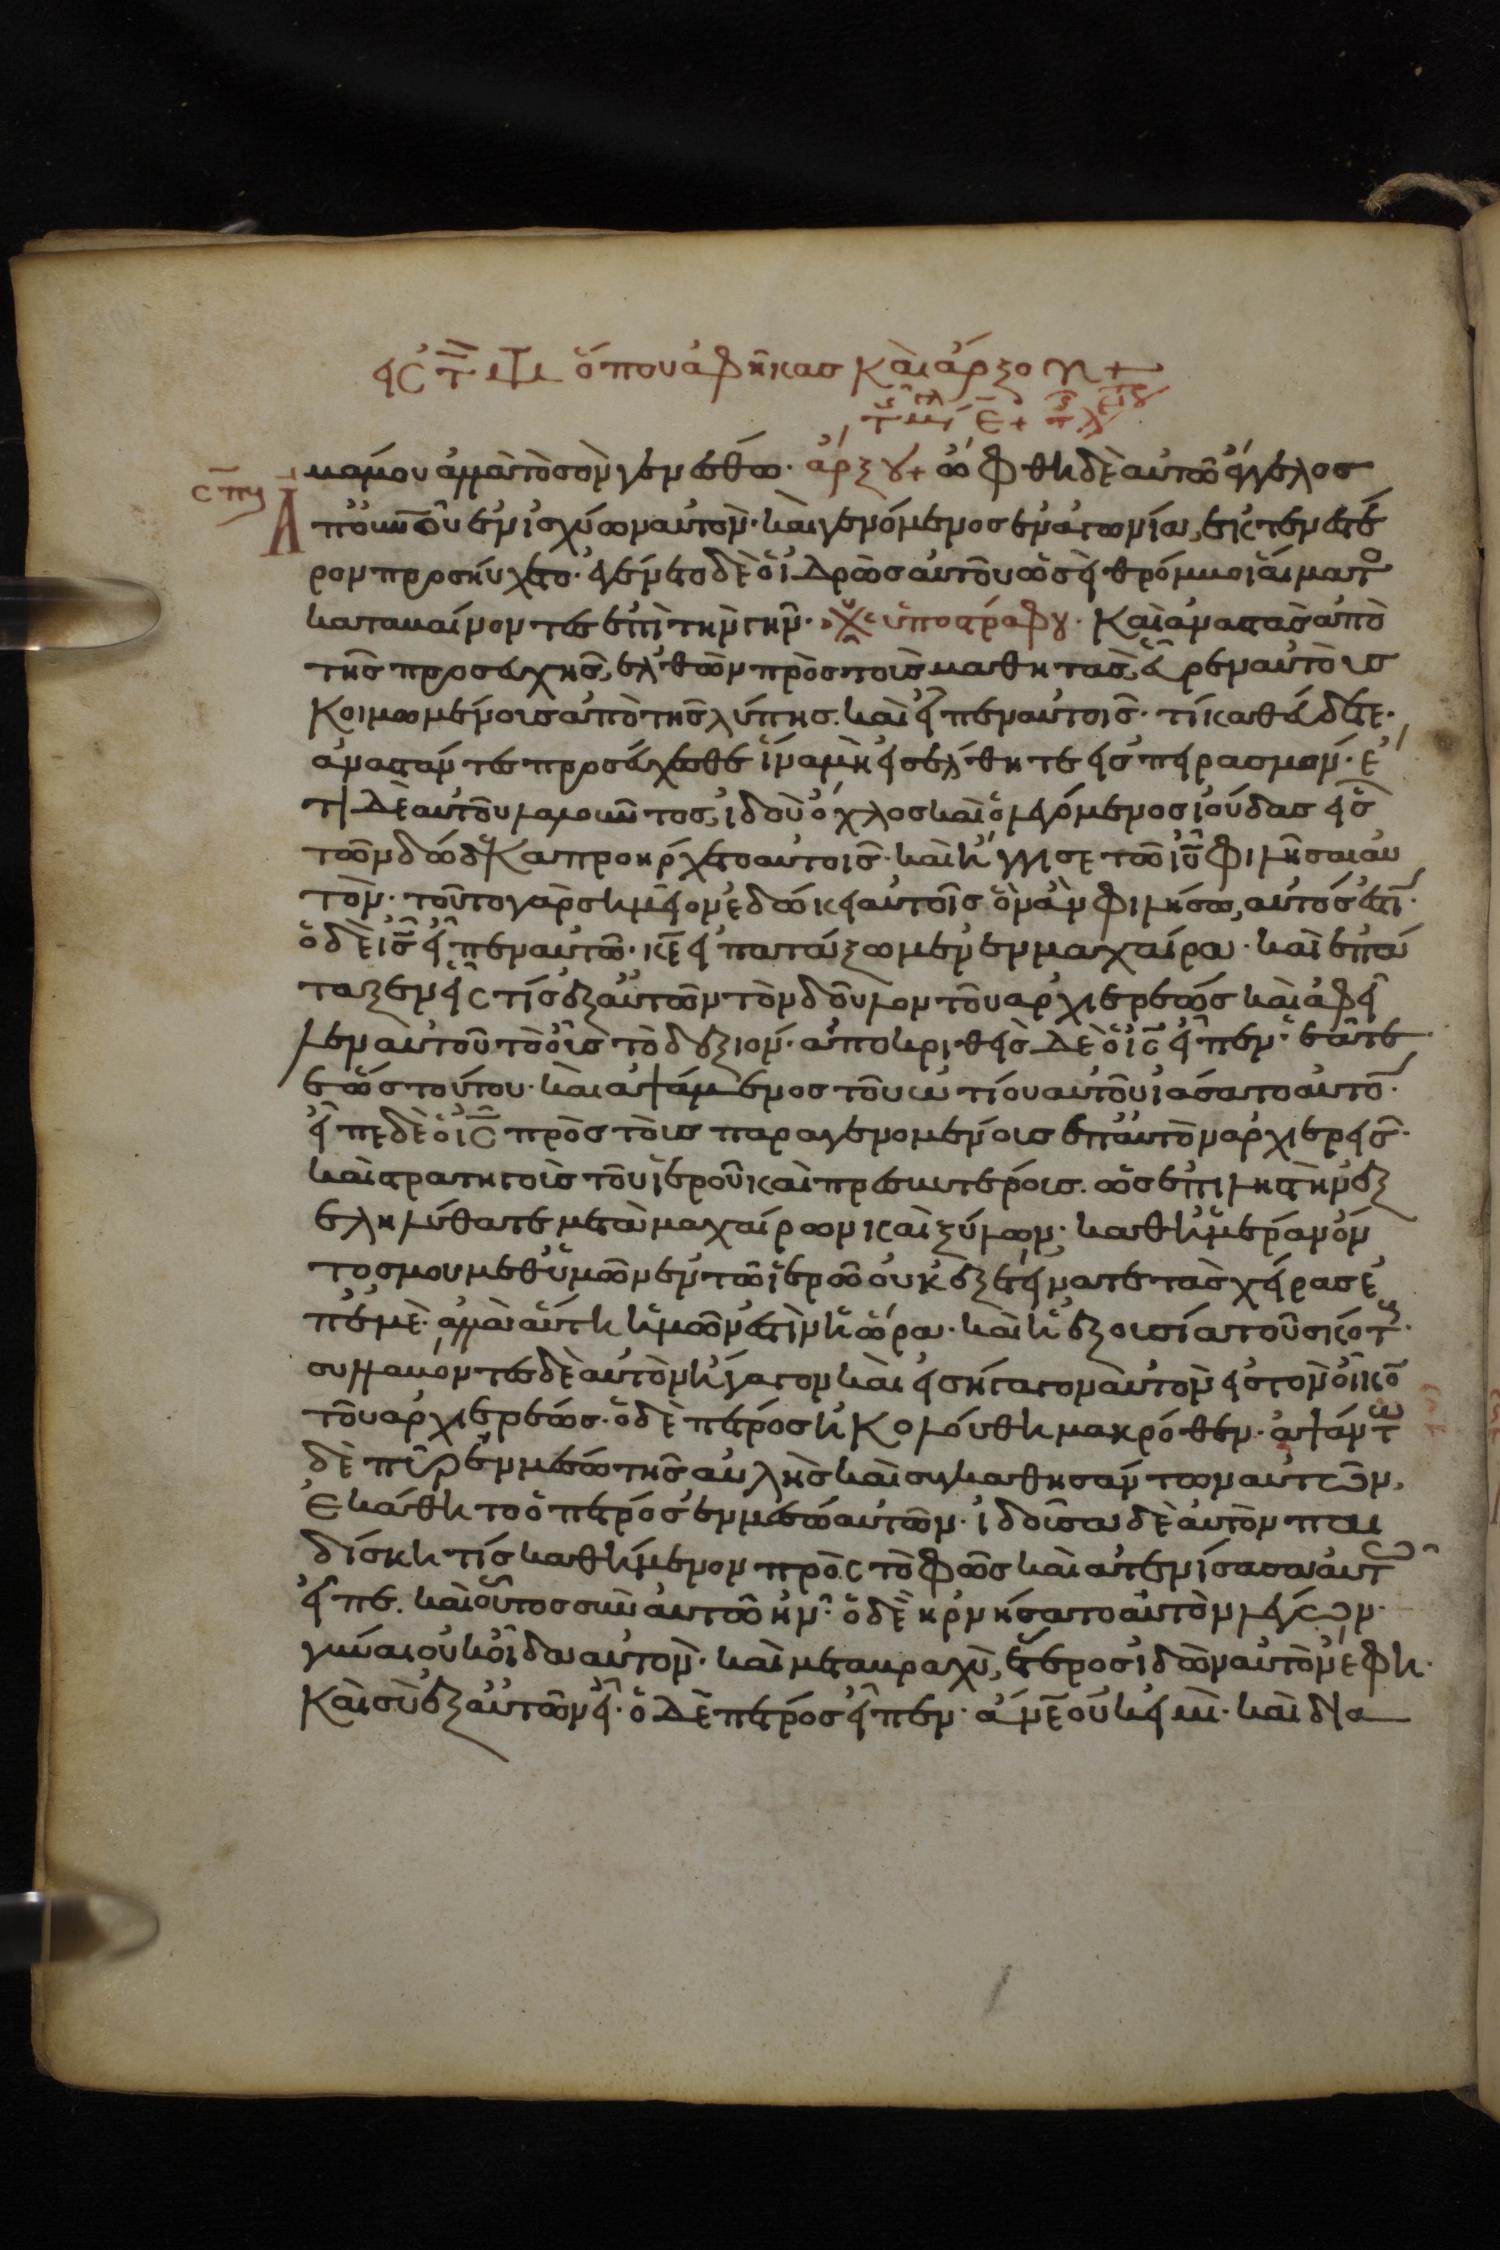 ὅπου ἀφῆκας καὶ ἄρξου +
μα μου ἀλλὰ τὸ σὸν γενέσθω· ἄρξου + ὤφθη δὲ αὐτῶ ἄγγελος
ἀπ οὐνοῦ ἐνισχύων αὐτὸν· καὶ γενόμενος ἐν ἀγωνία, ἐκτενέστε
ρον προσηύχετο· ἐγένετο δὲ ὁ ἱδρὼς αὐτοῦ ὡσεὶ θρόμβοι αἵματο
καταβαίνοντες ἐπὶ τὴν γῆν· ὑποστράφου· Καὶ ἀναστὰς ἀπὸ
τῆς προσευχῆς, ἐλθὼν πρὸς τοὺς μαθητὰς, εὗρεν αὐτοὺς
κοιμωμένους ἀπὸ τῆς λύπης. καὶ εἶπεν αὐτοῖς· τί καθεύδετε·
ἀναστάντες προσεύχεσθε ἵνα μὴ εἰσέλθητε εἰς πειρασμόν· ἔ
τι δὲ αὐτοῦ λαλοῦντος, ἰδοὺ ὄχλος καὶ ὁ λεγόμενος ἰούδας εἷς
τῶν δώδεκα προήρχετο αὐτοῖς· καὶ ἤγγισε τῶ ιυ φιλῆσαι αὐ
τόν· τοῦτο γὰρ σημεῖον ἐδώκει αὐτοῖς ὃν ἂν φιλήσω, αὐτός ἐστι·
ὁ δὲ ις εἶπεν αὐτῶ· κε εἰ πατάξωμεν ἐν μαχαίρα· καὶ ἐπά
ταξεν εἷς τίς ἐξ αὐτῶν τὸν δοῦλον τοῦ ἀρχιερέως καὶ ἀφεῖ
λεν αὐτοῦ τὸ οὖς τὸ δεξιόν· ἀποκριθεὶς δὲ ὁ ις εἶπεν· ἐᾶτε
ἕως τούτου· καὶ ἁψάμενος τοῦ ὠτίου αὐτοῦ ἰάσατο αὐτό·
εἶπε δὲ ὁ ις πρὸς τοὺς παραγενομένους ἐπ αὐτὸν ἀρχιερεῖς·
καὶ στρατηγοὺς τοῦ ἱεροῦ καὶ πρεσβυτέρους. ὡς ἐπὶ ληστὴν ἐξ
εληλύθατε μετὰ μαχαίρων καὶ ξύλων· καθ ἡμέραν ὄν
τος μου μεθ ὑμῶν ἐν τῶ ἱερῶ οὐκ ἐξετείνατε τὰς χεῖρας ἐ
π ἐμὲ· ἀλλ αὕτη ὑμῶν ἐστὶν ἡ ὥρα· καὶ ἡ ἐξουσία τοῦ σκότ·
συλλαβόντες δὲ αὐτὸν ἤγαγον καὶ εἰσήγαγον αὐτὸν εἰς τὸν οἶκο
τοῦ ἀρχιερέως· ὁ δὲ πέτρος ἠκολούθη μακρόθεν· ἁψάντω
δὲ πῦρ ἐν μέσω τῆς αὐλῆς καὶ συγκαθησάντων αὐτῶν,
ἐκάθητο ὁ πέτρος ἐν μέσω αὐτῶν· ἰδοῦσα δὲ αὐτὸν παι
δίσκη τίς καθήμενον πρὸς τὸ φῶς καὶ ἀτενίσασα αὐτῶ
εἶπε. καὶ οὗτος σὺν αὐτῶ ἦν· ὁ δὲ ἠρνήσατο αὐτὸν λέγων·
γύναι οὐκ οἶδα αὐτόν· καὶ μετὰ βραχὺ, ἕτερος ἰδὼν αὐτὸν ἔφη·
Καὶ σὺ ἐξ αὐτῶν εἶ· ὁ δὲ πέτρος εἶπεν· ἄνε οὐκ εἰμὶ· καὶ δια